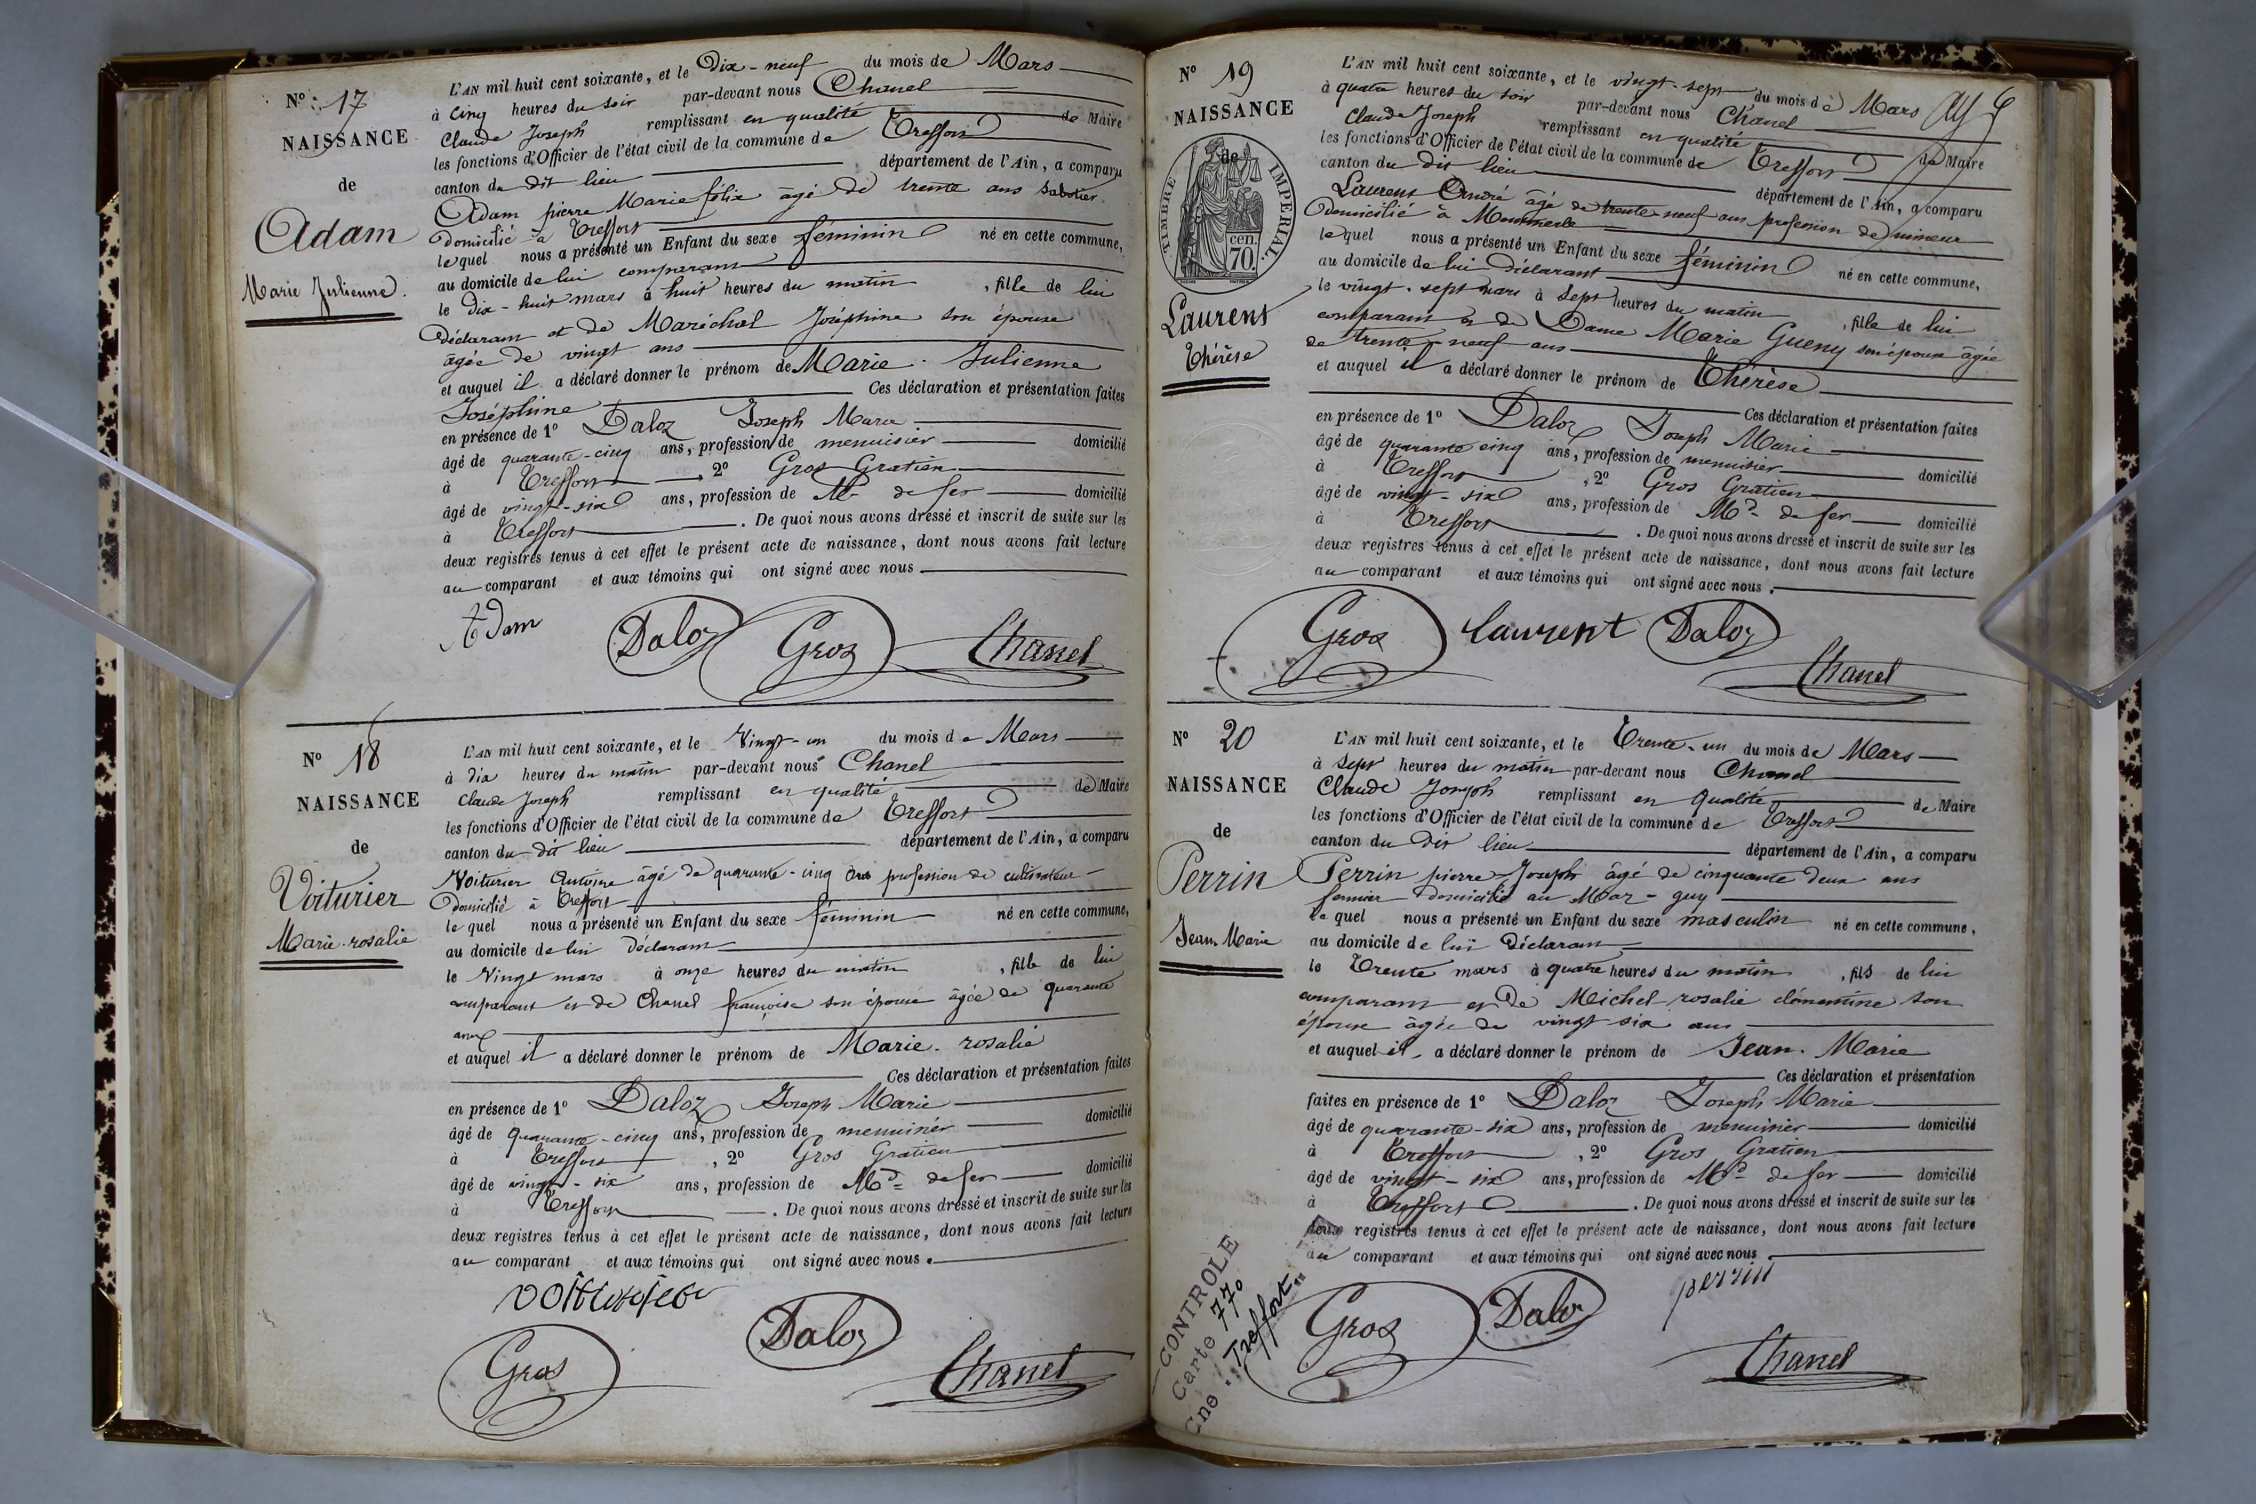 N° 17
NAISSANCE
de
Adam
Marie Julienne.
L'AN mil huit cent soixante, et le Dix-neuf du mois de Mars
à cinq heures du soir par-devant nous Chanel
Claude Joseph remplissant en qualité de Maire
les fonctions d'Officier de l'état civil de la commune de Treffort
canton du dit lieu département de l'Ain, a comparu
Adam pierre Marie félix âgé de trente ans Sabotier
domicilié à Treffort
lequel nous a présenté un Enfant du sexe féminin né en cette commune,
au domicile de lui comparant
le dix-huit mars à huit heures du matin, fille de lui
Déclarant et de Maréchal Joséphine son épouse
âgée de vingt ans
et auquel il a déclaré donner le prénom de Marie Julienne
Joséphine Ces déclaration et présentation faites
en présence de 1° Daloz Joseph Marie
âgé de quarante-cinq ans, profession de menuisier domicilié
à Treffort, 2° Gros Gratien
âgé de vingt-six ans, profession de Md de fer domicilié
à Treffort. De quoi nous avons dressé et inscrit de suite sur les
deux registres tenus à cet effet le présent acte de naissance, dont nous avons fait lecture
au comparant et aux témoins qui ont signé avec nous
Adam Daloz Gros Chanel
N° 18
NAISSANCE
de
Voiturier
Marie-rosalie
L'AN mil huit cent soixante, et le Vingt-un du mois de Mars
à dix heures du matin par-devant nous Chanel
Claude Joseph remplissant en qualité de Maire
les fonctions d'Officier de l'état civil de la commune de Treffort
canton du dit lieu département de l'Ain, a comparu
Voiturier Antoine âgé de quarante-cinq ans profession de cultivateur
domicilié à Treffort
lequel nous a présenté un Enfant du sexe féminin né en cette commune,
au domicile de lui Déclarant
le Vingt mars à onze heures du matin, fille de lui
comparant et de Chanel françoise son épouse âgée de quarante
ans
et auquel il a déclaré donner le prénom de Marie-rosalie
Ces déclaration et présentation faites
en présence de 1° Daloz Joseph Marie
âgé de quarante-cinq ans, profession de menuisier domicilié
à Treffort, 2° Gros Gratien
âgé de vingt-six ans, profession de Md de fer domicilié
à Treffort. De quoi nous avons dressé et inscrit de suite sur les
deux registres tenus à cet effet le présent acte de naissance, dont nous avons fait lecture
au comparant et aux témoins qui ont signé avec nous.
Voiturier
Gros Daloz Chanel
N° 19
NAISSANCE
de
TIMBRE IMPERIAL
cen.
70.
Laurent
Thérèse
L'AN mil huit cent soixante, et le vingt-sept du mois de Mars
à quatre heures du soir par-devant nous Chanel
Claude Joseph remplissant en qualité de Maire
les fonctions d'Officier de l'état civil de la commune de Treffort
canton du dit lieu département de l'Ain, a comparu
Laurent André âgé de trente-neuf ans profession de mineur
Domicilié à
lequel nous a présenté un Enfant du sexe féminin né en cette commune,
au domicile de lui Déclarant
le vingt-sept mars à Sept heures du matin, fille de lui
comparant et de Dame Marie Gueny son épouse âgée
de trente-neuf ans
et auquel il a déclaré donner le prénom de Thérèse
Ces déclaration et présentation faites
en présence de 1° Daloz Joseph Marie
âgé de quarante cinq ans, profession de menuisier domicilié
à Treffort, 2° Gros Gratien
âgé de vingt-six ans, profession de Md de fer domicilié
à Treffort. De quoi nous avons dressé et inscrit de suite sur les
deux registres tenus à cet effet le présent acte de naissance, dont nous avons fait lecture
au comparant et aux témoins qui ont signé avec nous.
Gros Laurent Daloz
Chanel
N° 20
NAISSANCE
de
Perrin
Jean Marie
L'AN mil huit cent soixante, et le Trente-un du mois de Mars
à Sept heures du matin par-devant nous Chanel
Claude Joseph remplissant en qualité de Maire
les fonctions d'Officier de l'état civil de la commune de Treffort
canton du dit lieu département de l'Ain, a comparu
Perrin pierre-Joseph âgé de cinquante deux ans
fermier domicilié au Mar-guy
lequel nous a présenté un Enfant du sexe masculin né en cette commune,
au domicile de lui Déclarant
le Trente mars à quatre heures du matin, fils de lui
comparant et de Michel rosalie clémentine son
épouse âgée de vingt-six ans
et auquel il a déclaré donner le prénom de Jean-Marie
Ces déclaration et présentation
faites en présence de 1° Daloz Joseph-Marie
âgé de quarante-six ans, profession de menuisier domicilié
à Treffort, 2° Gros Gratien
âgé de vingt-six ans, profession de Md de fer domicilié
à Treffort. De quoi nous avons dressé et inscrit de suite sur les
deux registres tenus à cet effet le présent acte de naissance, dont nous avons fait lecture
au comparant et aux témoins qui ont signé avec nous.
Gros Daloz perrin
Chanel
CONTROLE
Carte 770
Cne "Treffort"